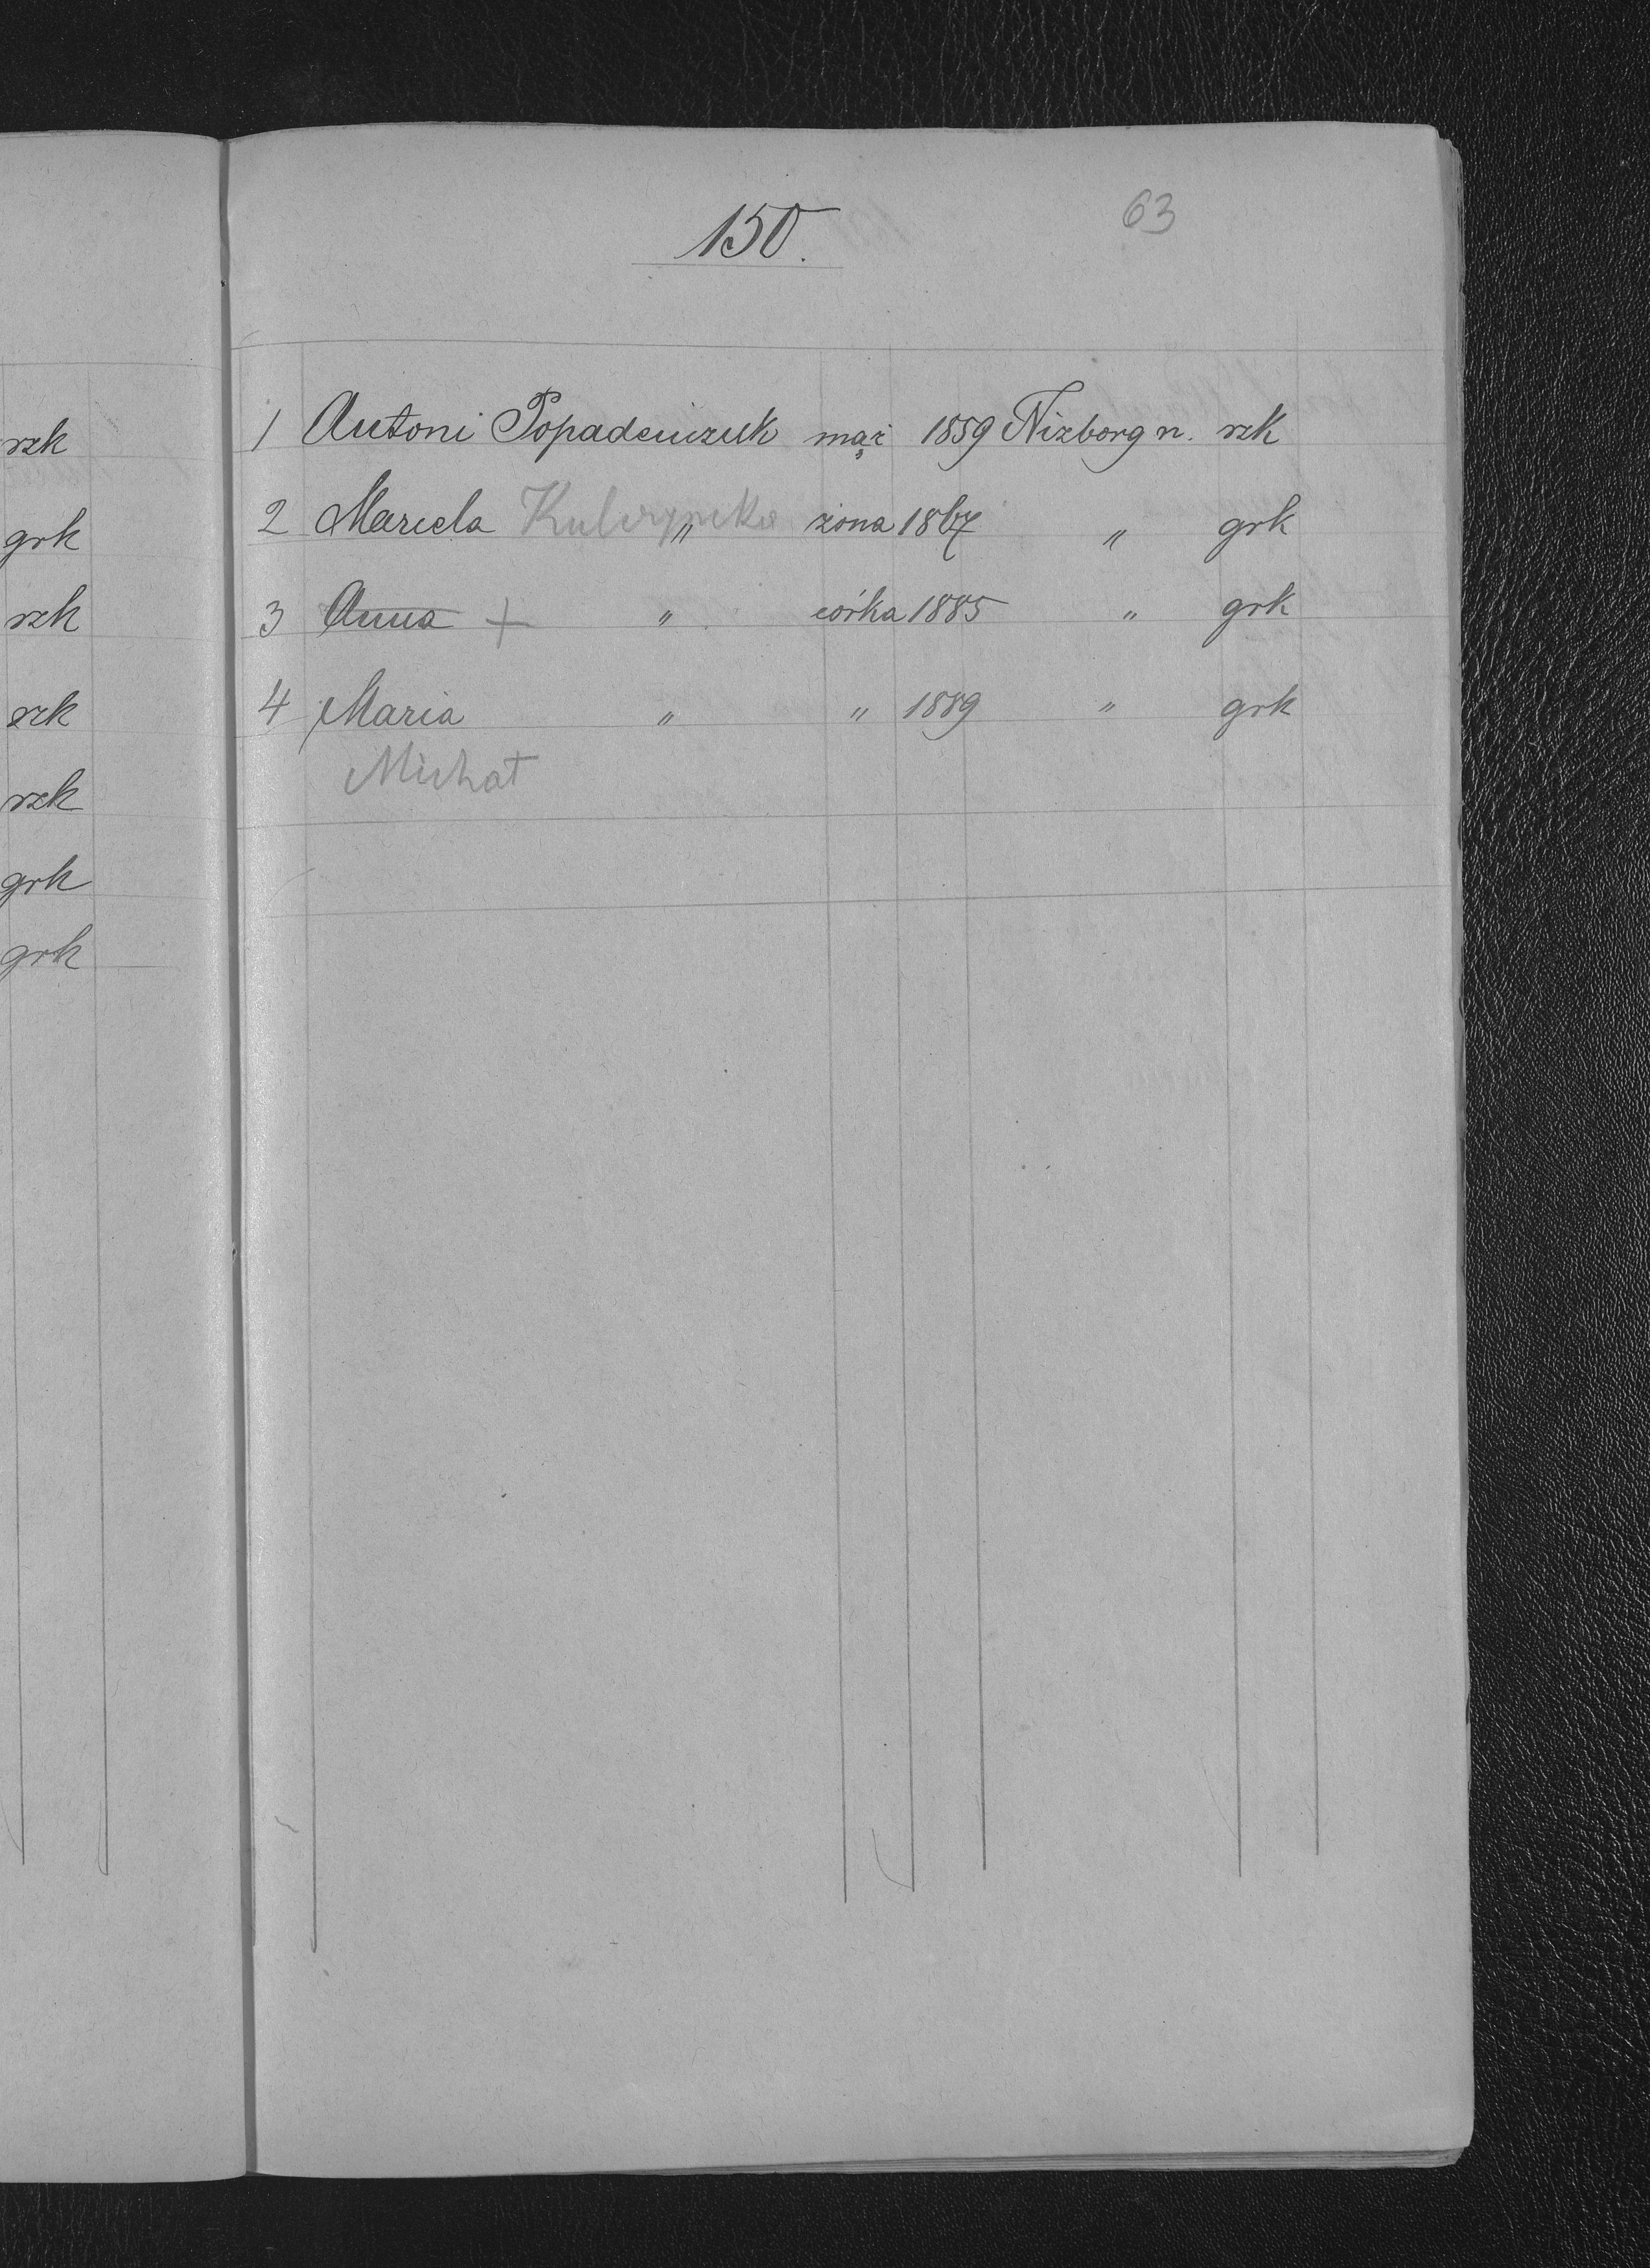 150.
63
1 Antoni Popadeniczuk mąż 1859 Niżborg n. rzk
2 Marcela " żona 1867 " grk
3 Anna + " córka 1885 " grk
4 Maria " " 1889 " grk
Michał
rzk
grk
rzk
rzk
rzk
grk
grk